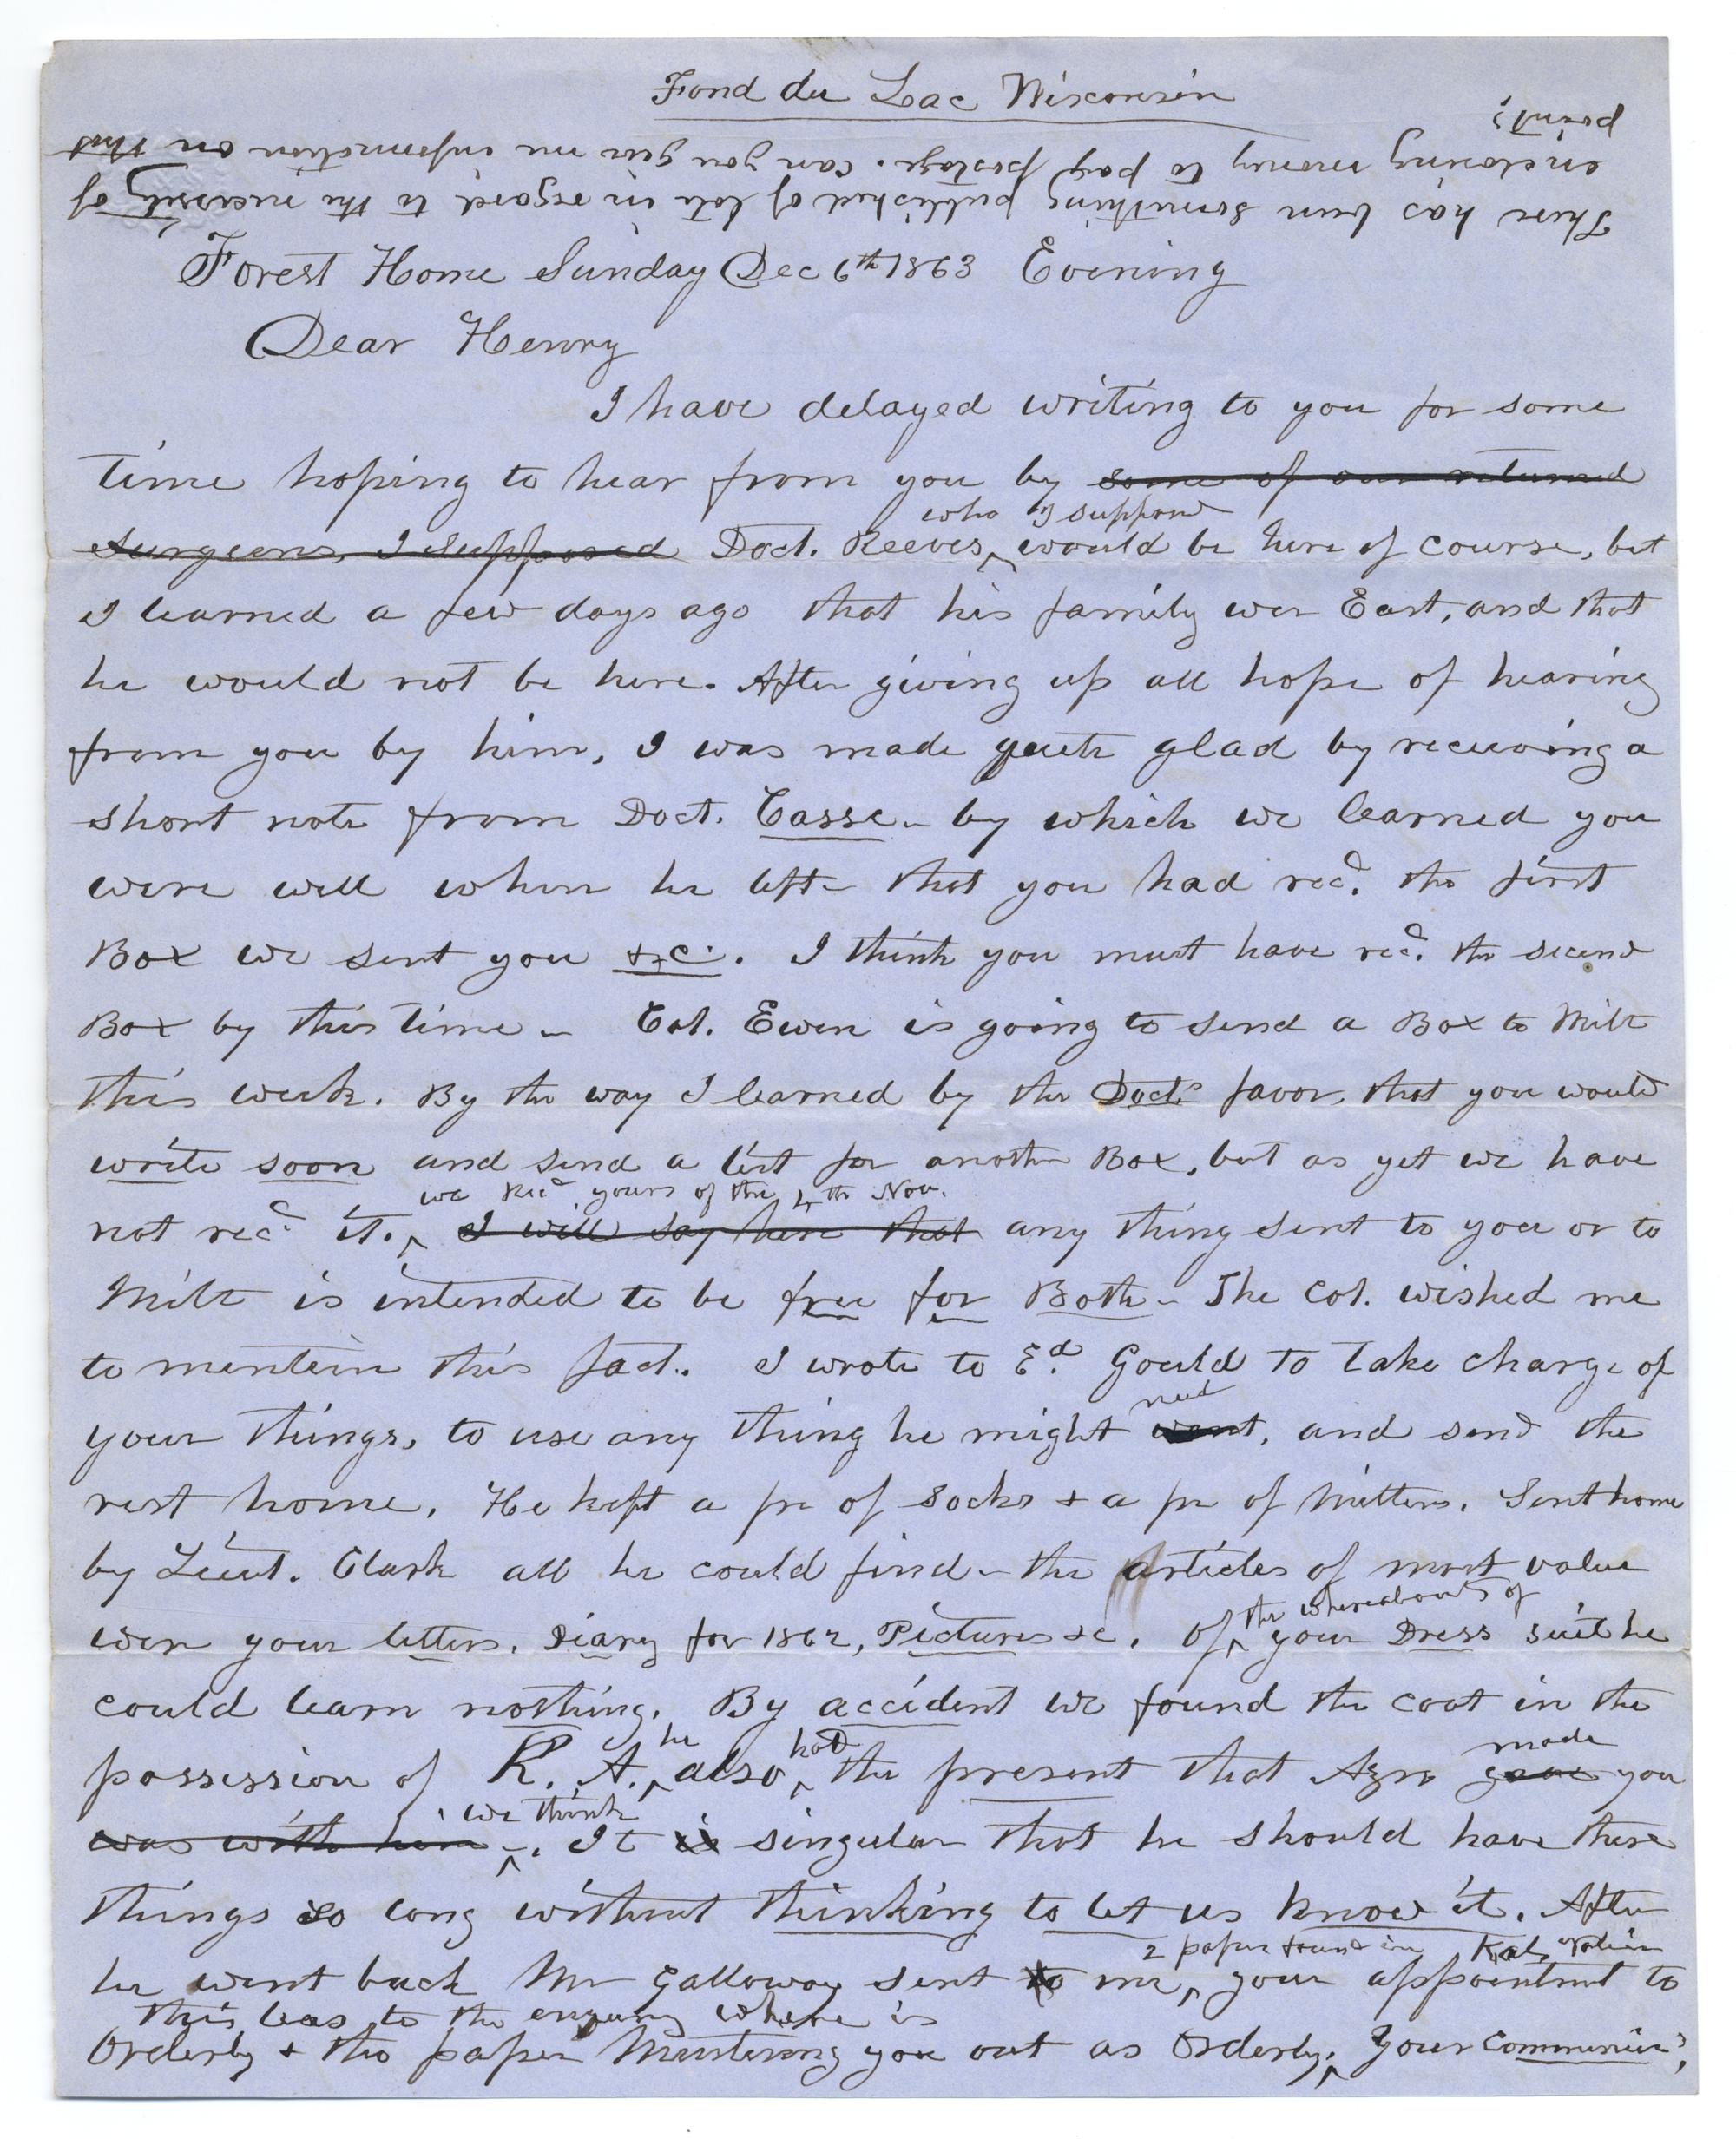 Fond du Lac Wisconsin
There has been something published of late in regard to the necessity of
enclosing money to pay postage. Can you give me information on this
point?
Forest Home Sunday Dec 6th 1863 Evening
Dear Henry
I have delayed writing to you for some
time hoping to hear from you by some of our returned
who I suppose
Surgeons, I supposed Doct. Reeves, would be here of course, but
I learned a few days ago that his family wer East, and that
he would not be here. After giving up all hope of hearing
from you by him, I was made quite glad by receiving a
short note from Doct. Casse - by which we learned you
were well when he left - that you had recd. the first
Box we sent you &c. I think you must have recd. the second
Box by this time - Col. Ewen is going to send a Box to Milt
this week. By the way I learned by the Docts favor, that you would
write soon and send a list for another Box, but as yet we have
we Recd yours of the 4th Nov.
not recd it. I will say here that any thing sent to you or to
Milt is intended to be free for Both - The Col. wished me
to mention this fact. I wrote to Ed. Gould to take charge of
need
your things, to use any thing he might want, and send the
rest home. He kept a pr of socks + a pr of mittens. Sent home
by Lieut. Clark all he could find - the articles of most value
the whereabouts of
were your letters, Diary for 1862, Pictures &c. Of your Dress suit he
could learn nothing. By accident we found the coat in the
he had made
possession of R. A. also the present that Azro gave you
we think
was with him -. It is singular that he should have these
things so long without thinking to let us know it. After
2 papers found in
he went back Mr Galloway sent to me, your appointmt to
this leas to the enquiry where is
Orderly + the paper Mustering you out as Orderly. Your